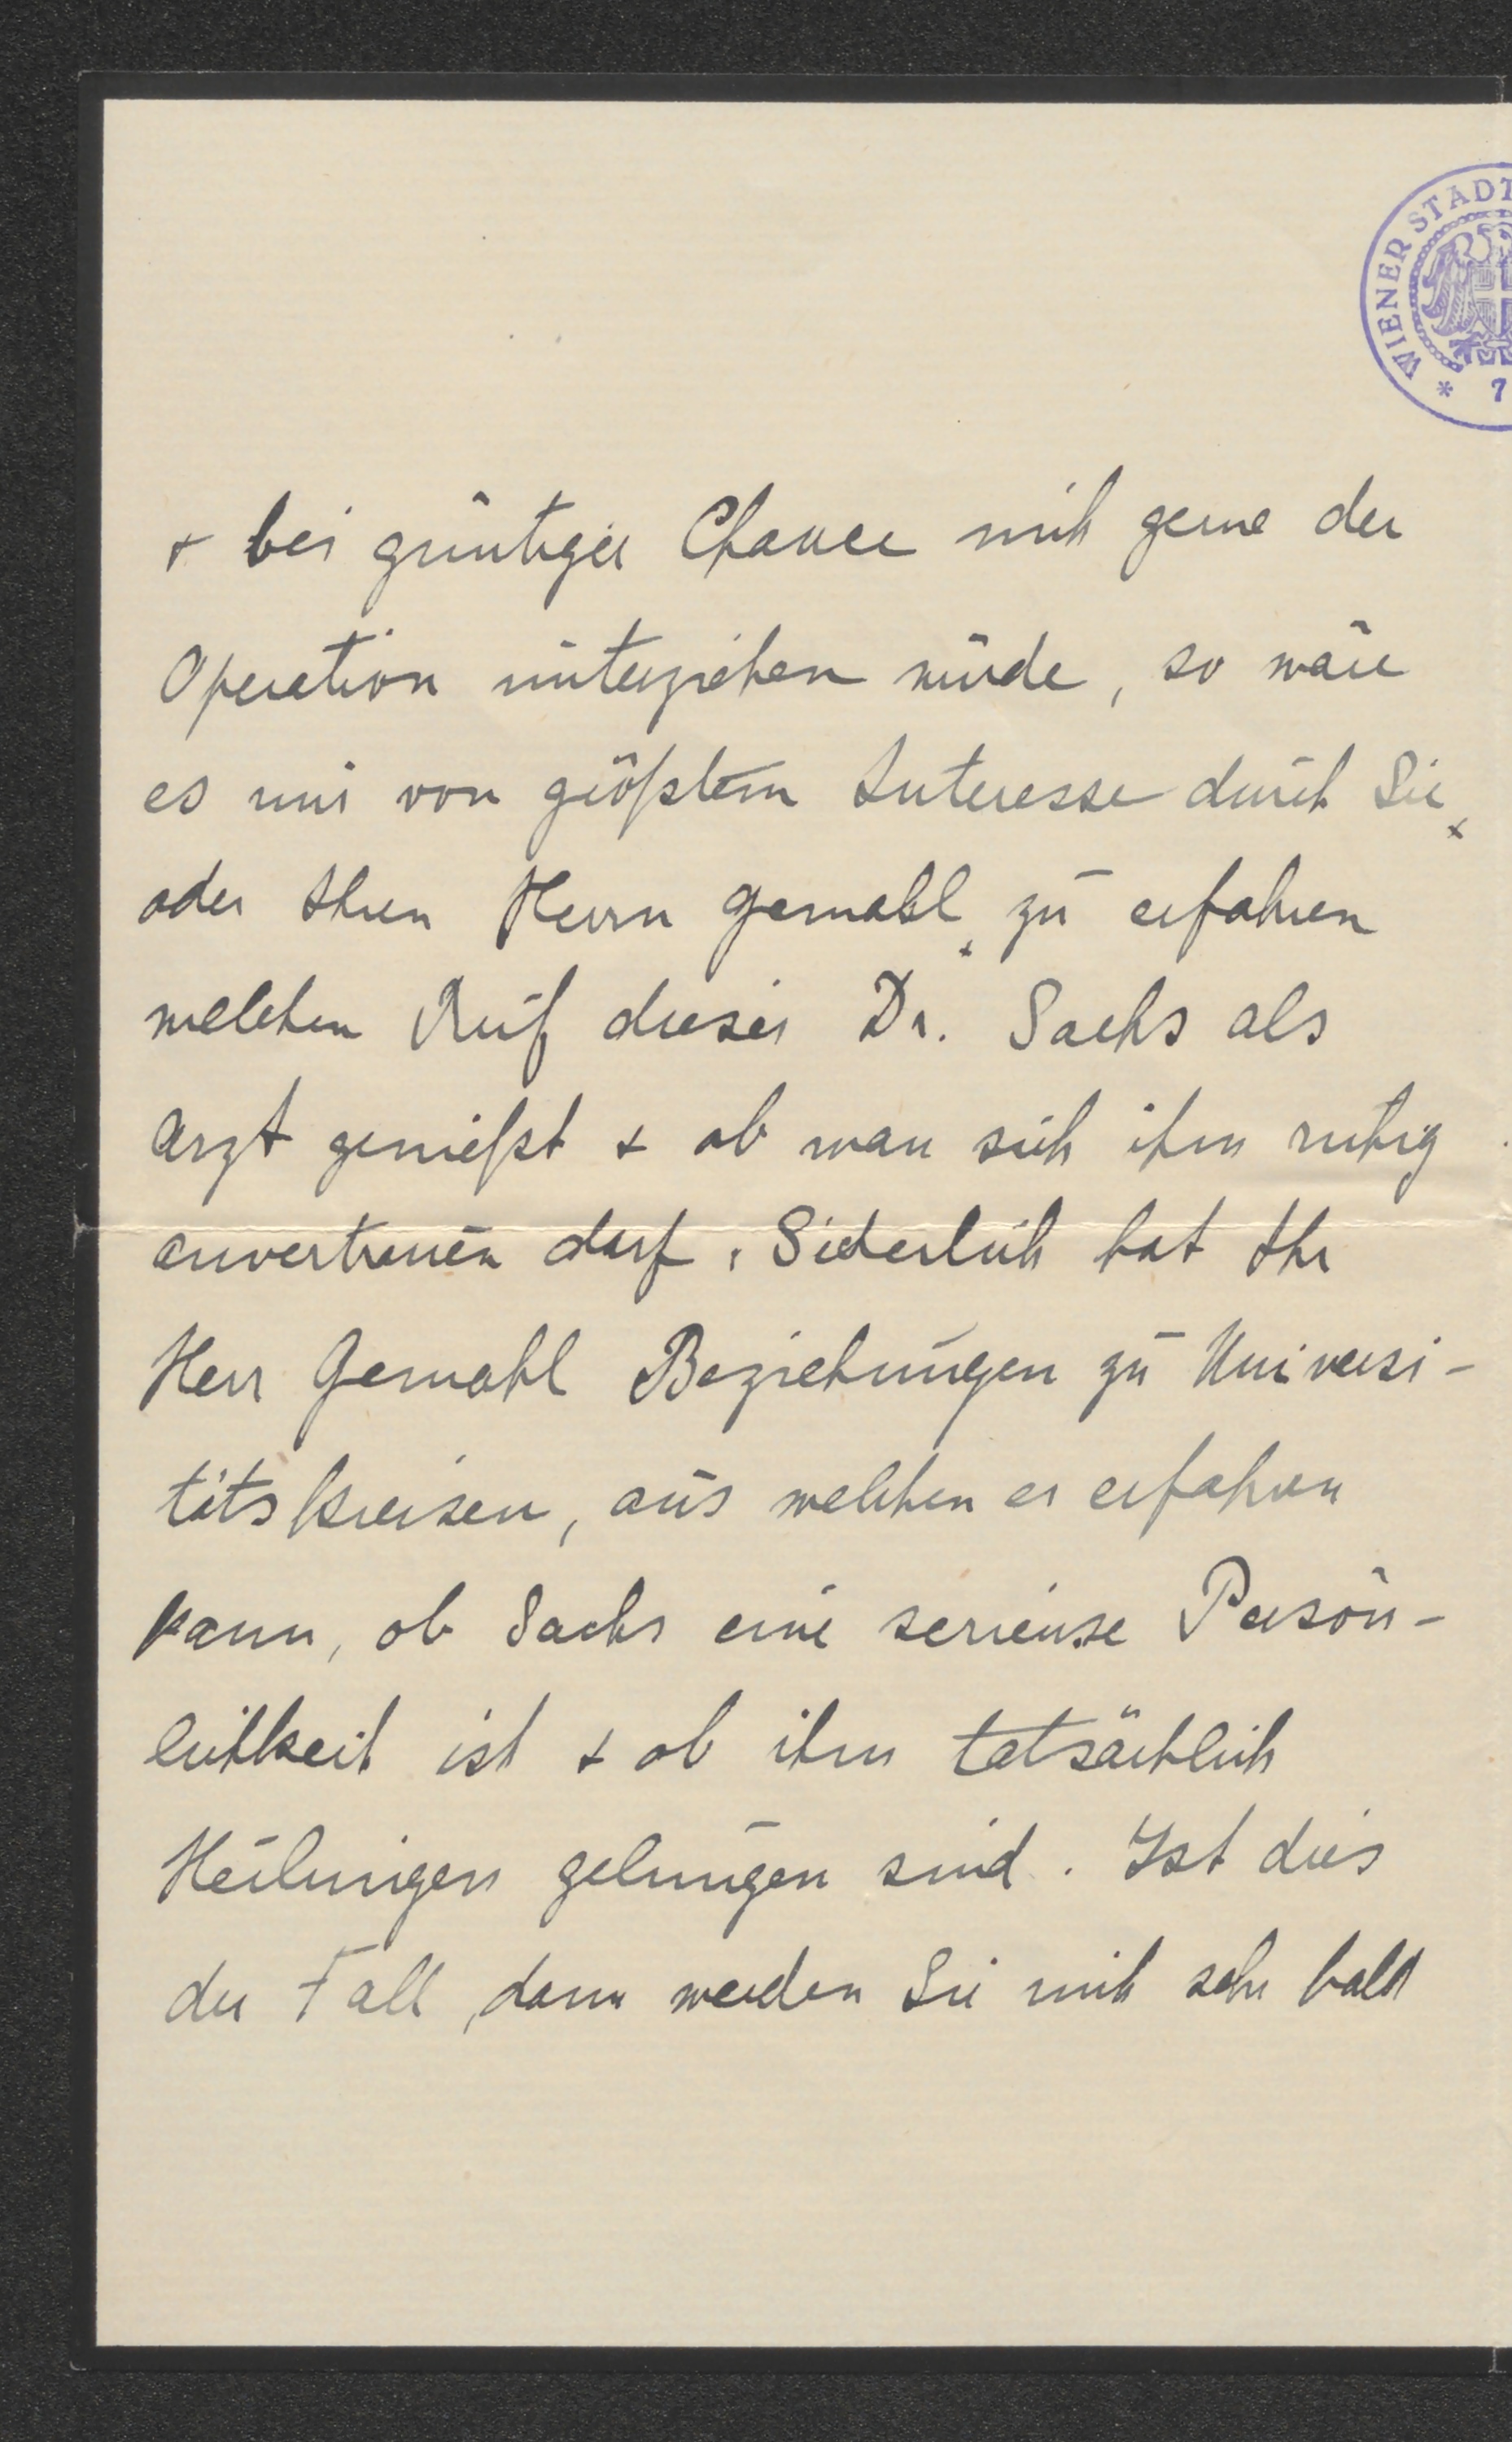 WIENER STADT
* 7
+ bei günstiger Chance mich gerne der
Operation unterziehen würde, so wäre
es mir von größtem Interesse durch Sie
oder Ihren Herrn Gemahl zu erfahren
welchen Ruf dieser Dr. Sachs als
Arzt genießt + ob man sich ihm ruhig
anvertrauen darf. Sicherlich hat Ihr
Herr Gemahl Beziehungen zu Universi-
tätskreisen, aus welchen er erfahren
kann, ob Sachs eine serieuse Persön-
lichkeit ist + ob ihm tatsächlich
Heilungen gelungen sind. Ist dies
der Fall, dann werden Sie mich sehr bald